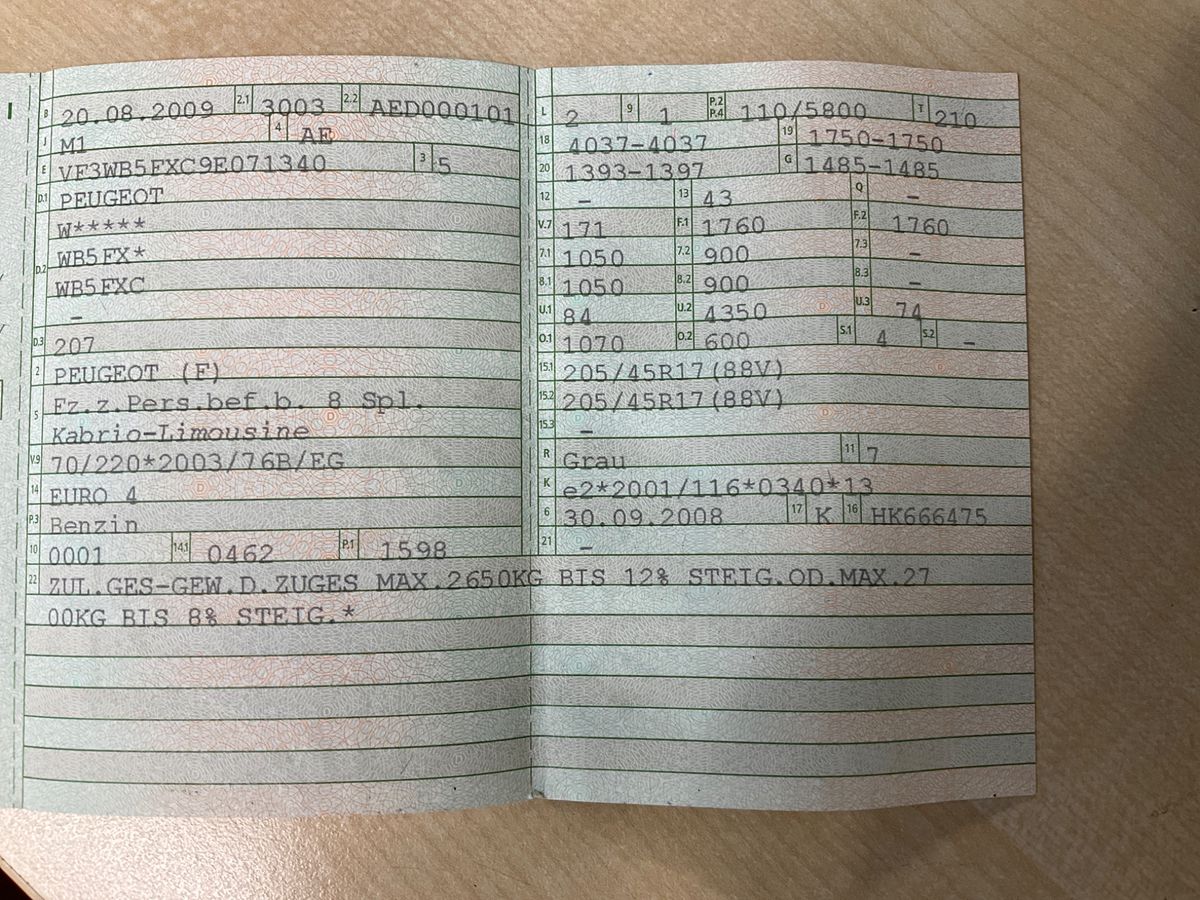 B 20.08.2009 2.1 3003 2.2 AED000101
J M1 4 AE
E VF3WB5FXC9E071340 3 5
D.1 PEUGEOT
D.2 W*****
WB5FX*
WB5FXC
–
D.3 207
2 PEUGEOT (F)
5 Fz.z.Pers.bef.b. 8 Spl.
Kabrio-Limousine
V.9 70/220*2003/76B/EG
14 EURO 4
P.3 Benzin
10 0001 14.1 0462 P.1 1598
L 2 9 1 P.2 P.4 110/5800 T 210
18 4037-4037 19 1750-1750
20 1393-1397 G 1485-1485
12 – 13 43 Q –
V.7 171 F.1 1760 F.2 1760
7.1 1050 7.2 900 7.3 –
8.1 1050 8.2 900 8.3 –
U.1 84 U.2 4350 U.3 74
O.1 1070 O.2 600 S.1 4 S.2 –
15.1 205/45R17(88V)
15.2 205/45R17(88V)
15.3 –
R Grau 11 7
K e2*2001/116*0340*13
6 30.09.2008 17 K 16 HK666475
21 –
22 ZUL.GES-GEW.D.ZUGES MAX.2650KG BIS 12% STEIG.OD.MAX.27
00KG BIS 8% STEIG.*